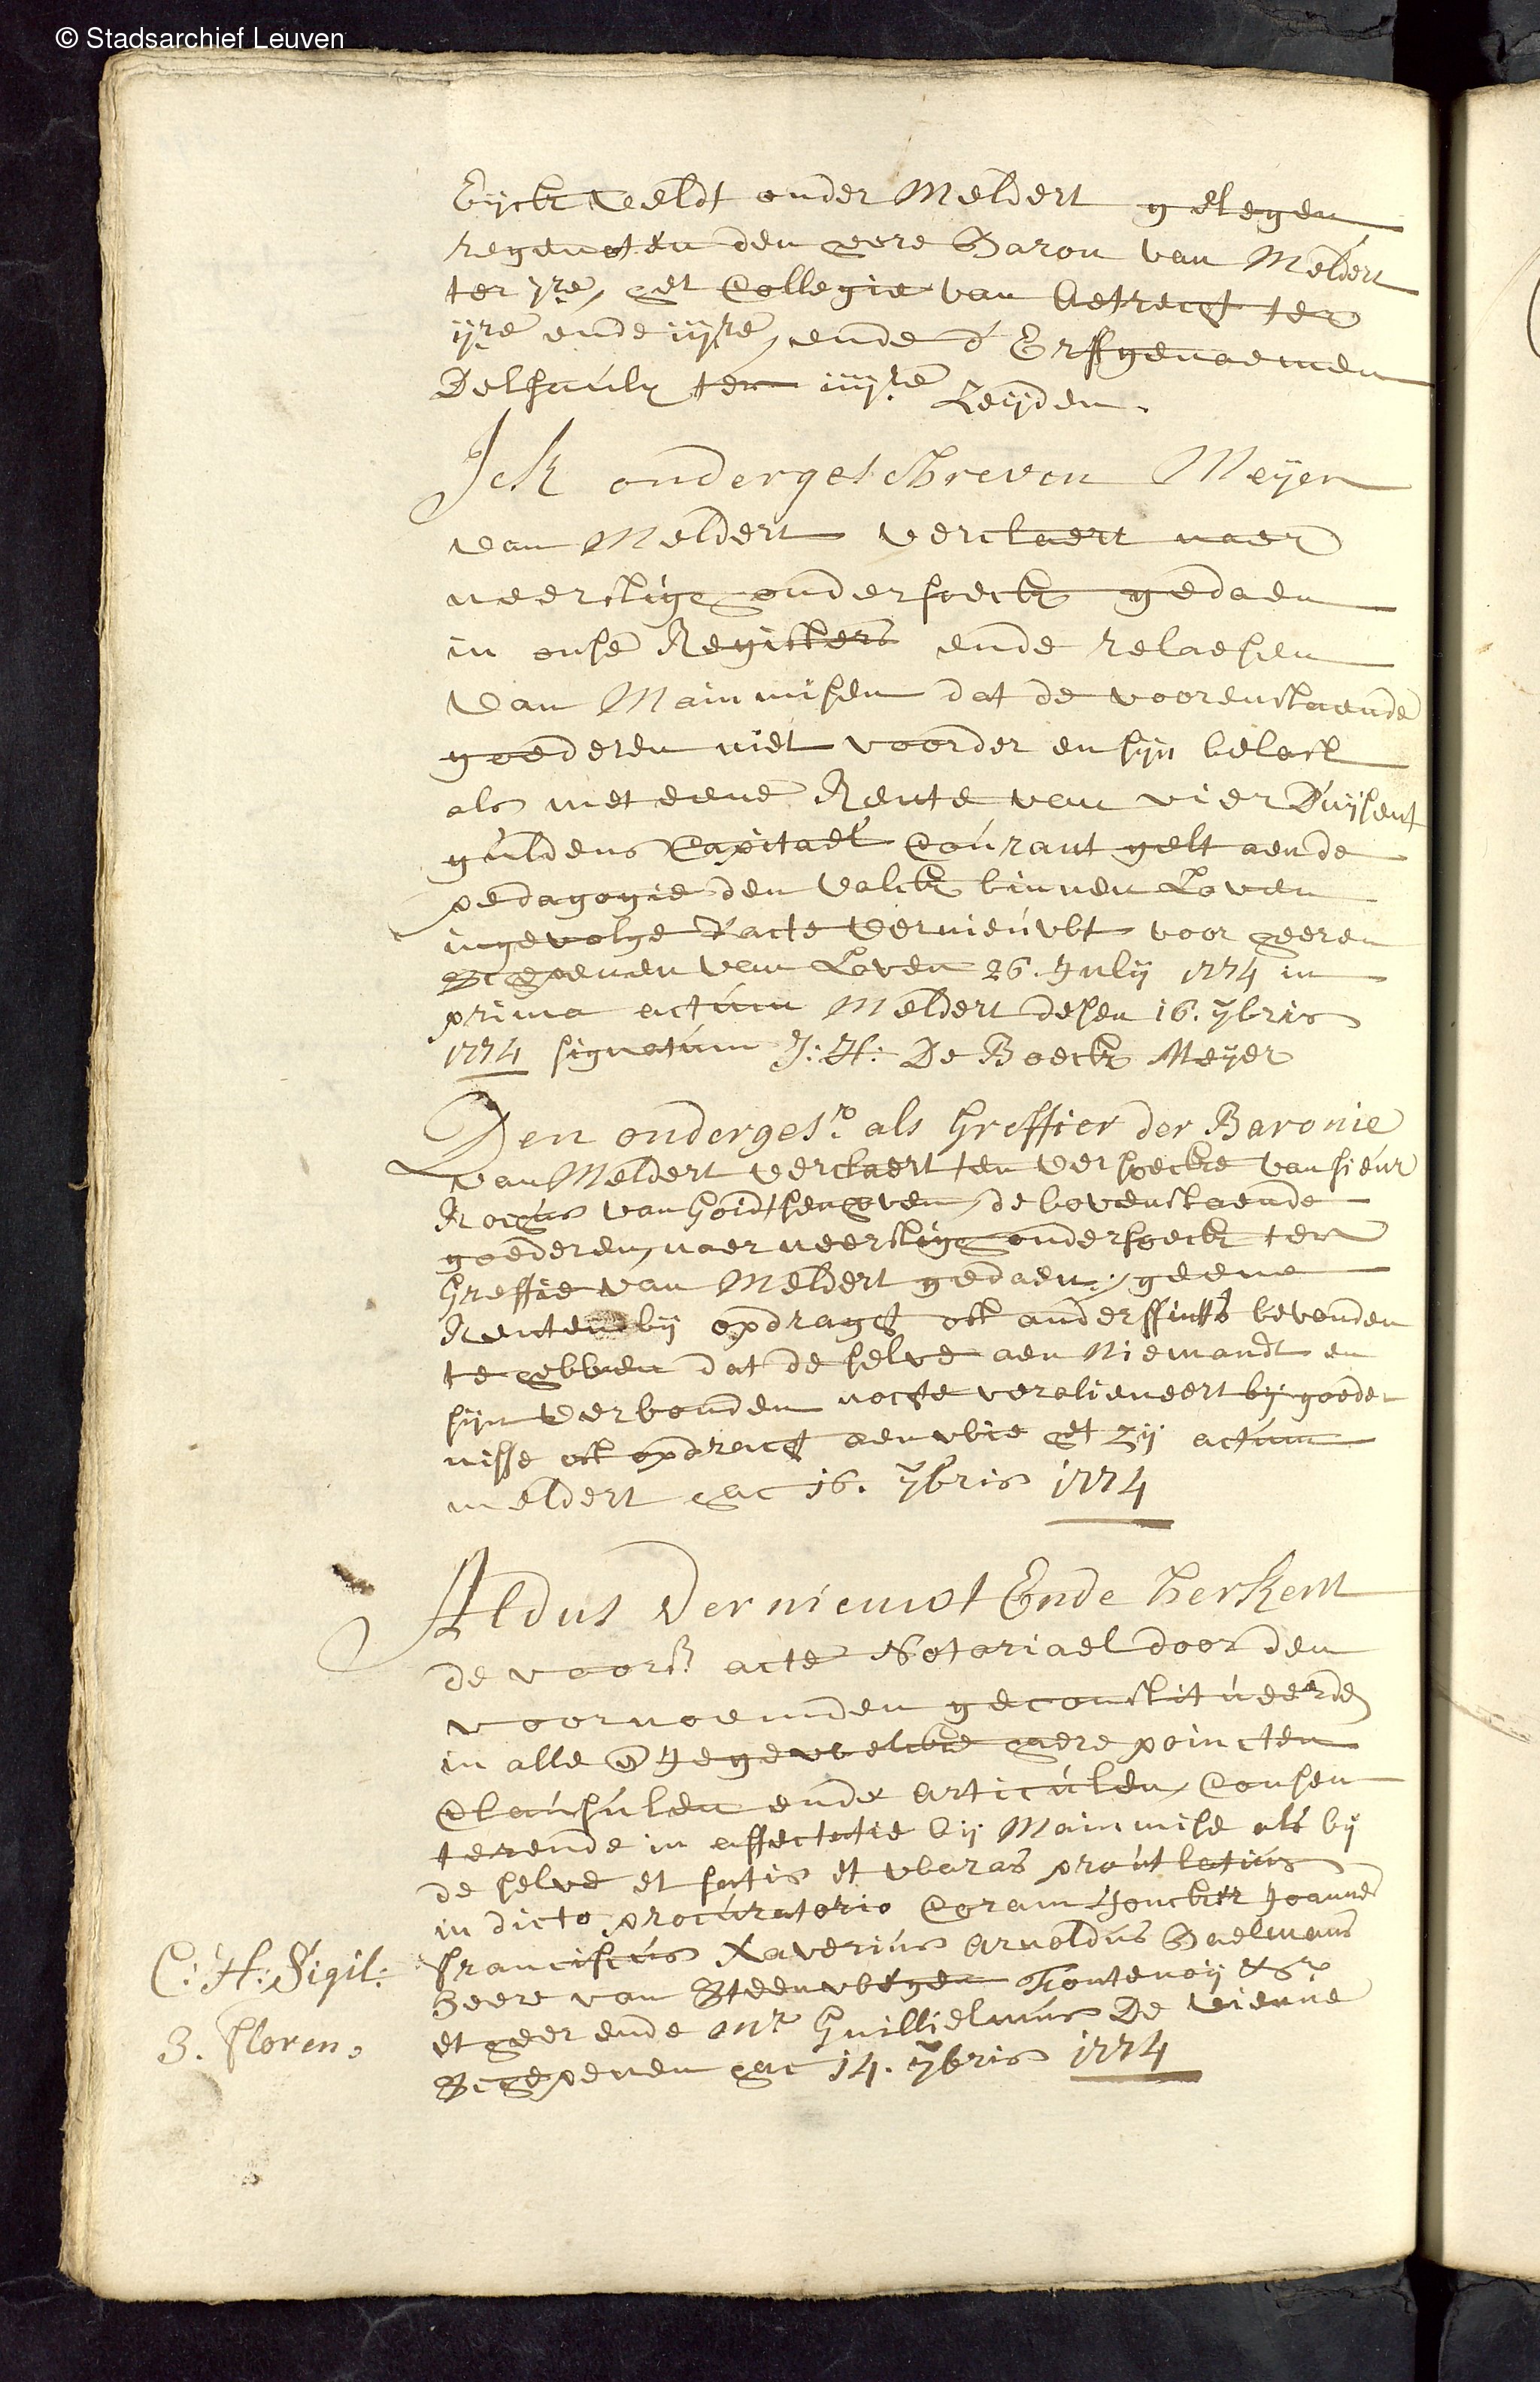 © Stadsarchief Leuven
Eyckveldt onder Meldert gelegen
regenoten den heere Baron van Meldert
ter jre, het Collegie van Aetrecht ter
ijre ende iijre, ende d'Erffgenaemen
Delhaulx ter iiijre Zeyden.
Ick ondergeschreven Meyer
van Meldert verclaert naer
neerstige ondersoeck gedaen
in onse Registers ende relaesen
van Mainmisen dat de voorenstaende
goederen niet voorder en syn belast
als met eene Rente van vier Duysent
guldens Capitael Courant gelt aen de
pedagogie den valck binnen Loven
ingevolge d'acte vernieuwt voor heeren
Schepenen van Loven 26. July 1774 in
prima actum Meldert desen 16. 7bris
1774 signatum J: H: De Boeck Meyer
Den onderges.r als Greffier der Baronie
van Meldert verclaert ten versoecke van sieur
Rochus van Goidtsenhoven, de bovenstaende
goederen, naer neerstige ondersoeck ter
Greffie van Meldert gedaen, geene
Renten by opdraght oft anderssints bevonden
te hebben dat de selve aen Niemandt en
syn verbonden nochte veralieneert by goede
nisse oft opdracht aen wie het zy actum
meldert hac 16. 7bris 1774
Aldus Vernieuwt Ende herkent
de voors. acte Notariael door den
voornoemden geconstitueerde
in alle & jegewelcke haere poincten
Clausulen ende articulen, Consen
terende in affectatie by Mainmise als by
de selve et satis et waras prout latius
in dicto procuratorio Coram Joncker Joannes
franciscus Xaverius arnoldus Baelmans
heere van Steenwegen Fontenoy &a
et heer ende mr Guillielmus De Vienne
Schepenen hac 14. 7bris 1774
C: H: Sigil:
3. floren.